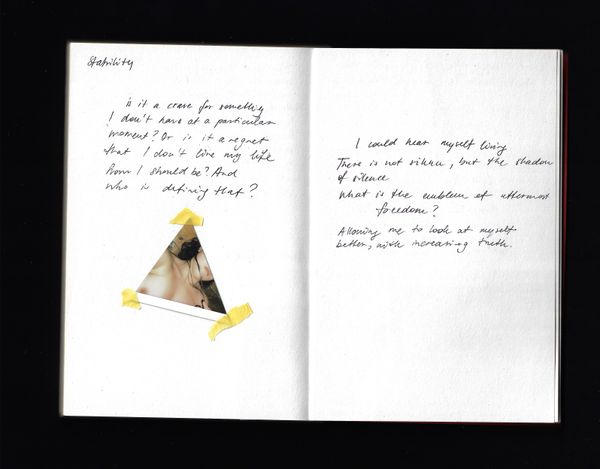 Stability
is it a crave for something
I don't have at a particular
moment? Or is it a regret
that I don't live my life
how I should be? And
who is defining that?
I could hear myself living
There is not silence, but the shadow
of silence
What is the emblem of uttermost
freedom?
Allowing me to look at myself
better, with increasing truth.